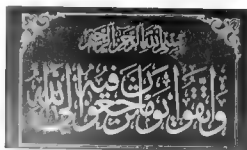 بسم الله الرحمن الرحيم
واتقوا يوما ترجعون فيه إلى الله